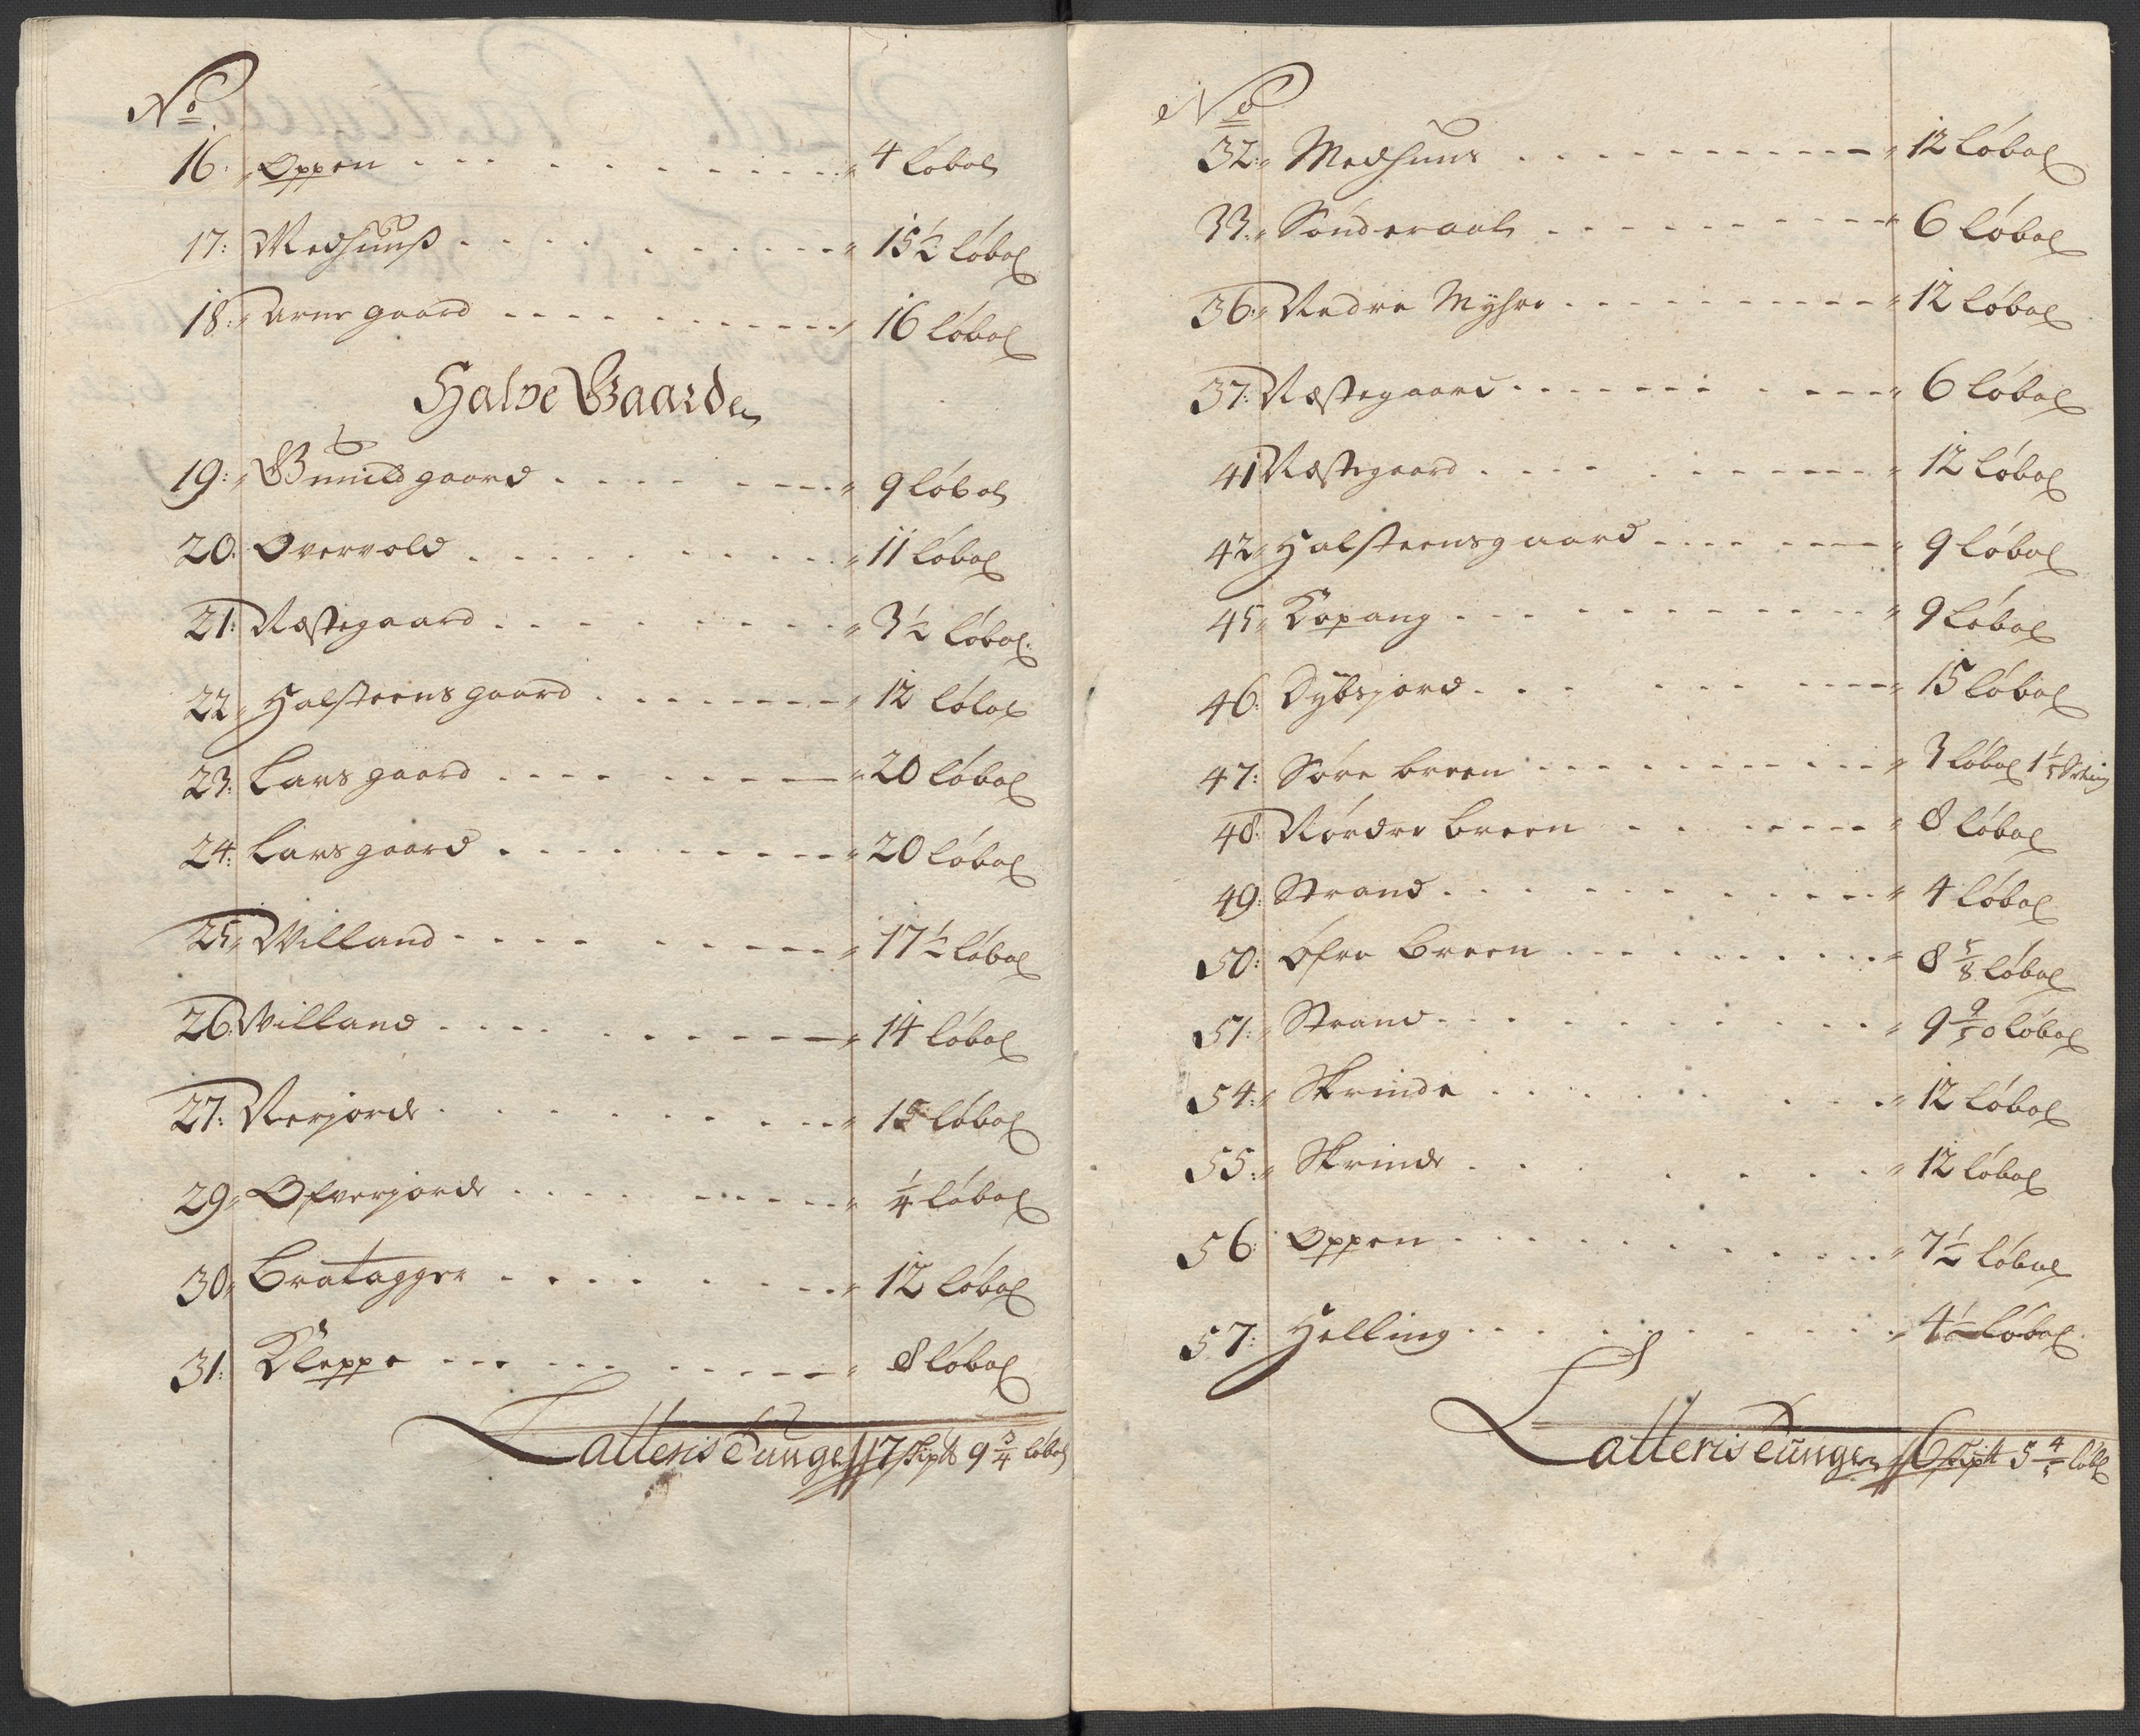 No
16: Oppen . . . . . . . . . . 4 løbol
17: Medhuuß . . . . . . . . . 15½ løbol
18: Arne gaard . . . . . . . . . 16 løbol
Halve Gaarder
19: Gunild gaard . . . . . . . . 9 løbol
20: Overvold . . . . . . . . . 11 løbol
21: Næstegaard . . . . . . . . . 3½ løbol
22 Halsteens gaard . . . . . . . . 12 løbol
23: Lars gaard . . . . . . . . . 20 løbol
24: Lars gaard . . . . . . . . . 20 løbol
25 Villand . . . . . . . . . 17½ løbol
26 Villand . . . . . . . . . 14 løbol
27: Nerjorde . . . . . . . . . 15 løbol
29 Ofverjorde . . . . . . . . . ¼ løbol
30 Bratagger . . . . . . . . . 12 løbol
31: Kleppe . . . . . . . . . 8 løbol
Latteris Tunge 17 skip℔ 9¾ løbol
No
32: Medhuus . . . . . . . . . . 12 løbol
33: Sønderaal . . . . . . . . . 6 løbol
36: Nedre Myhre . . . . . . . . . 12 løbol
37: Næstegaard . . . . . . . . . 6 løbol
41 Næstegaard . . . . . . . . . 12 løbol
42 Halsteensgaard . . . . . . . . 9 løbol
45 Kopang . . . . . . . . . 9 løbol
46: Dybsjord . . . . . . . . . 15 løbol
47: Søre breen . . . . . . . . . 3 løbol 1⅕
48: Nørdre breen . . . . . . . . 8 løbol
49: Strand . . . . . . . . . 4 løbol
50: Øfre breen . . . . . . . . . 8⅝ løbol
51: Strand . . . . . . . . . 9 9/50 løbol
54: Skrinde . . . . . . . . . 12 løbol
55: Skrinde . . . . . . . . . 12 løbol
56: Oppen . . . . . . . . . 7½ løbol
57: Helling . . . . . . . . . 4½ løbol
Latteris Tunge 16 skip℔ 5⅘ løbl